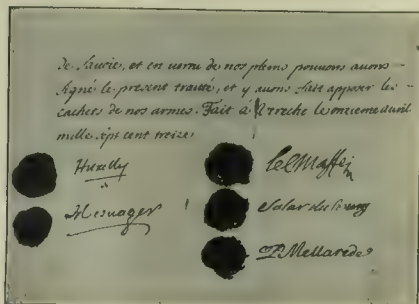 de Savoie, et en vertu de nos pleins pouvoirs avons
signé le present traitté, et y avons fait apposer les
cachets de nos armes. Fait à Utrecht le onzieme avril
mille sept cent treize
Huxelles
Mesnager
le C Maffei
Solar du Bourg
P. Mellarede